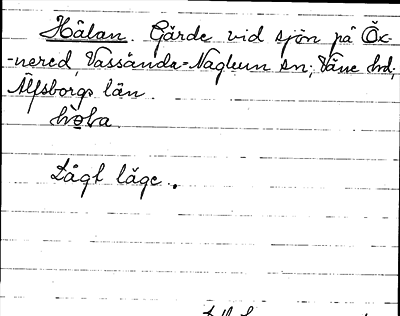 Hålan. Gärde vid sjön på Öx-
-nered, Vassända-Naglum sn; Väne hd;
Älfsborgs län.
hòla
Lågt läge.